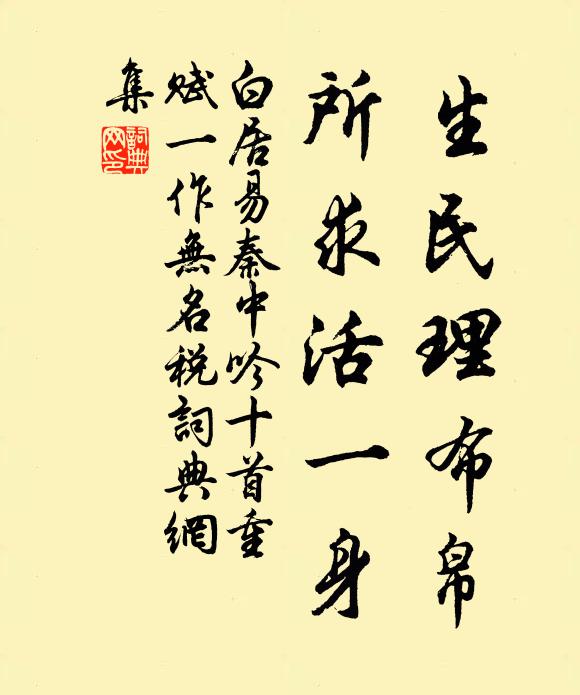 生民理布帛
所求活一身
白居易秦中吟十首重
賦一作無名税詞典網
集
詞典網印